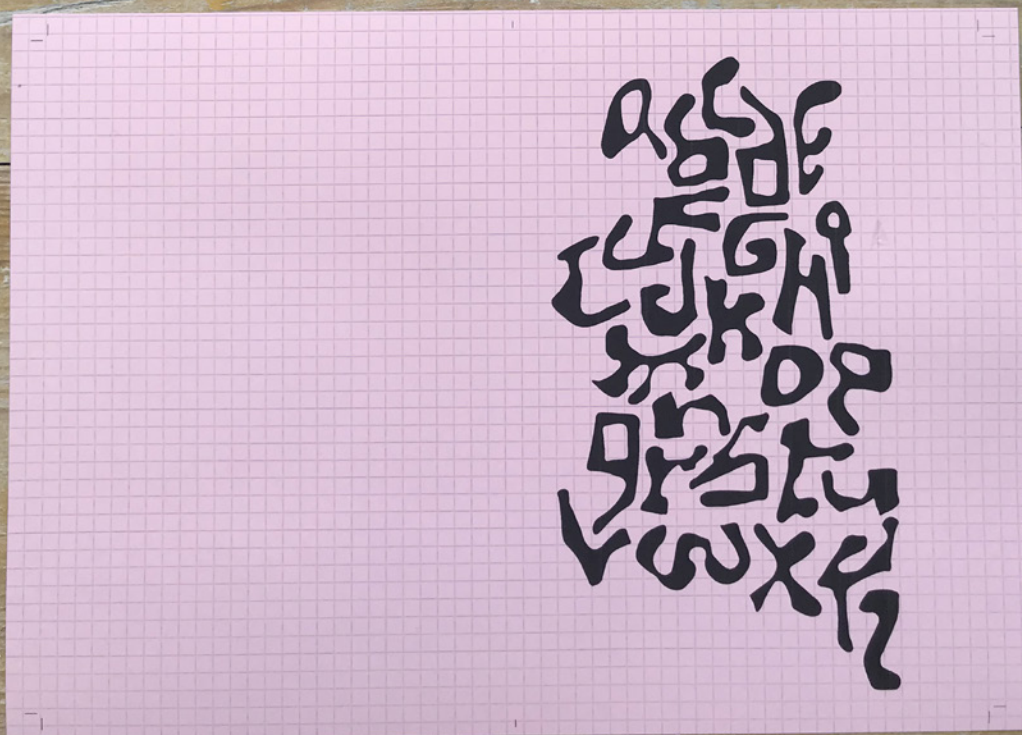 a b c d E
F G H i
L J K
m n O P
q r S t u
V w x y z